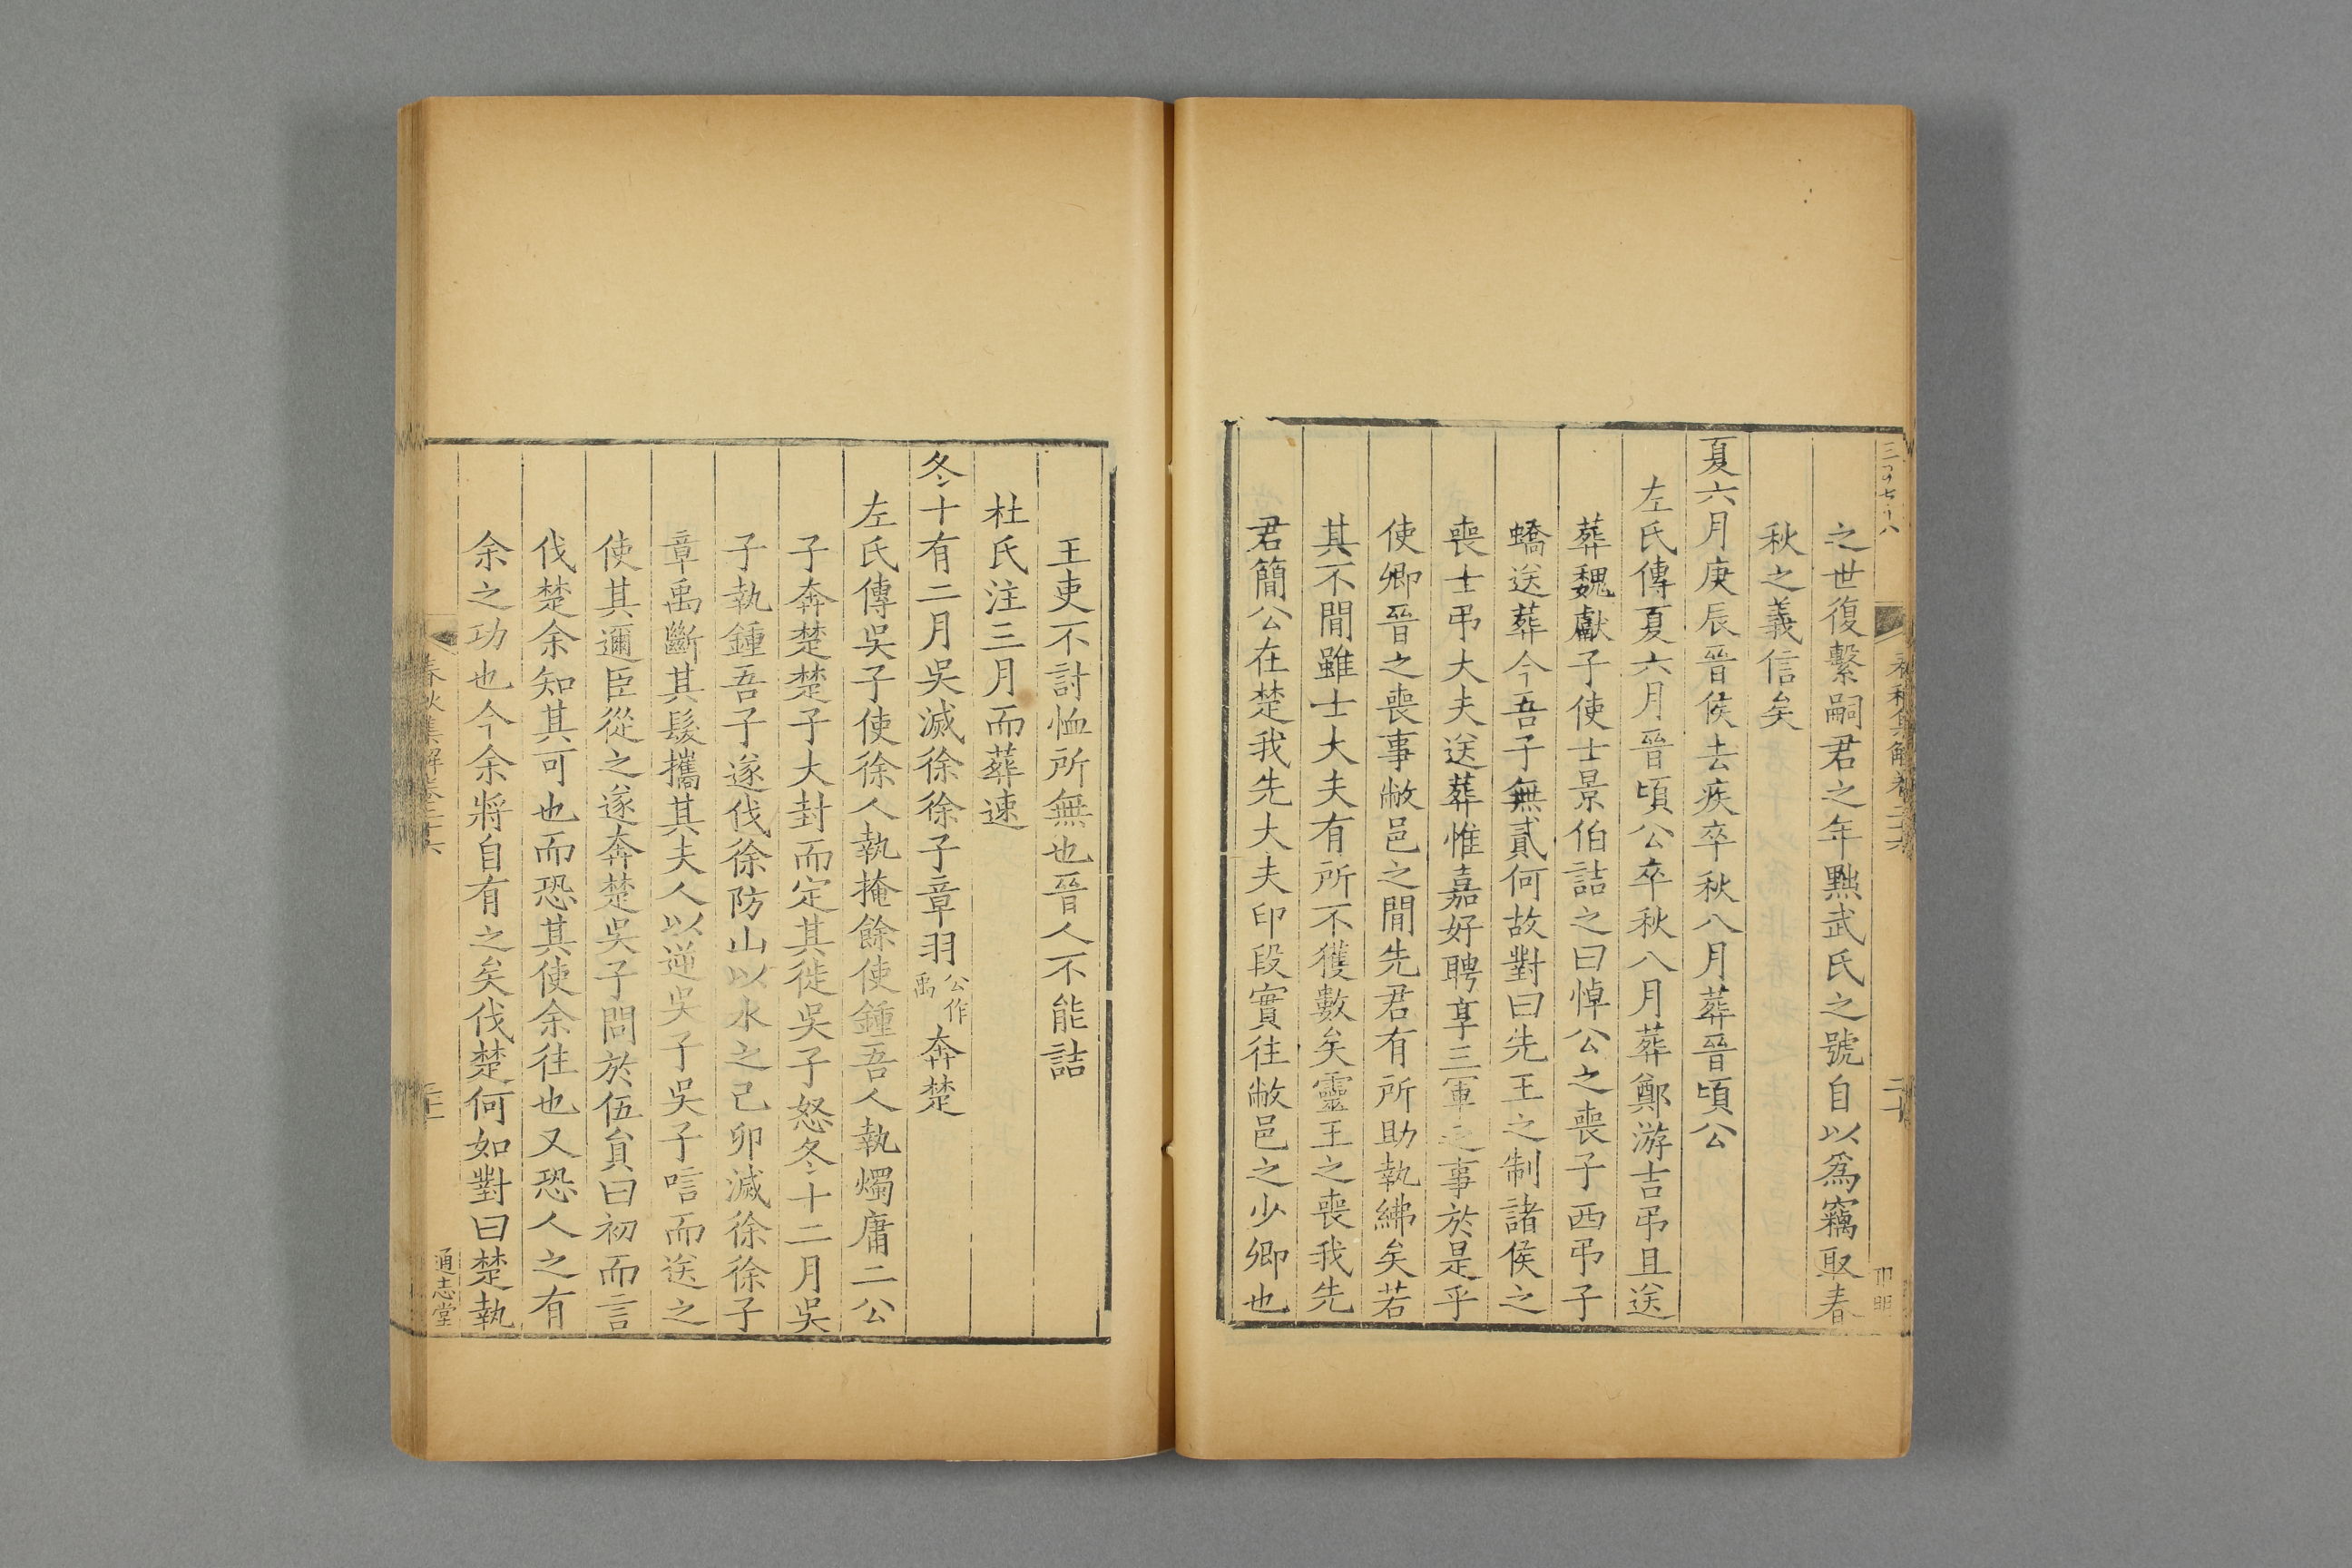 之世復繫嗣君之年黜武氏之號自以爲竊取春
秋之義信矣
夏六月庚辰晉侯去疾卒秋八月葬晉頃公
左氏傳夏六月晉頃公卒秋八月葬鄭游吉弔且送
葬魏獻子使士景伯詰之曰悼公之喪子西弔子
蟜送葬今吾子無貳何故對曰先王之制諸侯之
喪士弔大夫送葬惟嘉好聘享三軍之事於是乎
使卿晉之喪事敝邑之閒先君有所助執紼矣若
其不閒雖士大夫有所不獲數矣靈王之喪我先
君簡公在楚我先大夫印段實往敝邑之少卿也
王吏不討恤所無也晉人不能詰
杜氏注三月而葬速
冬十有二月吳滅徐徐子章羽公作禹奔楚
左氏傳吳子使徐人執掩餘使鍾吾人執燭庸二公
子奔楚楚子大封而定其徙吳子怒冬十二月吳
子執鍾吾子遂伐徐防山以水之己卯滅徐徐子
章禹斷其髮攜其夫人以逆吳子吳子唁而送之
使其邇臣從之遂奔楚吳子問於伍員曰初而言
伐楚余知其可也而恐其使余往也又恐人之有
余之功也今余將自有之矣伐楚何如對曰楚執
春秋集解卷二十六
通志堂